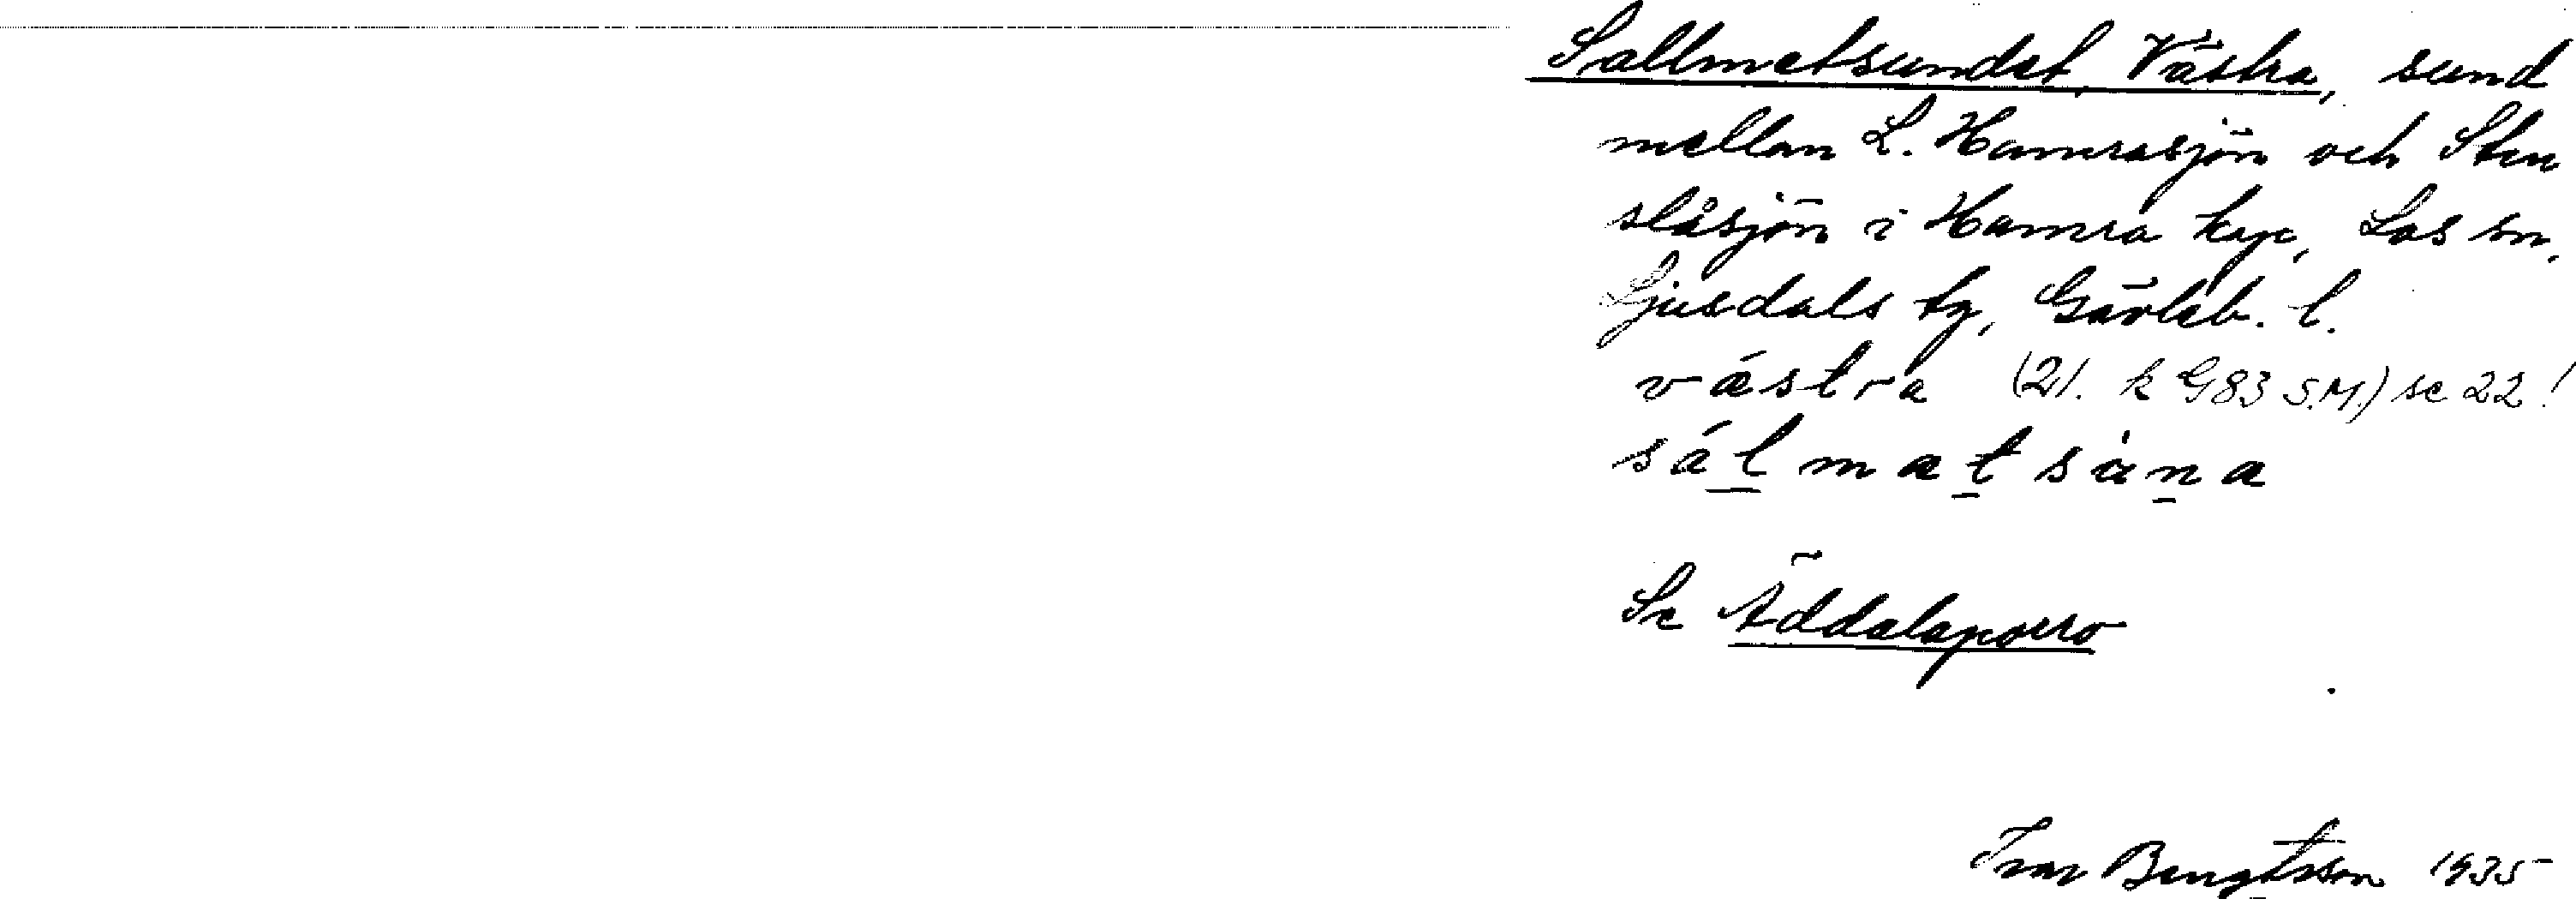 Sallmetsundet, Västra, sund
mellan L. Hamrasjön och Sten
slåsjön i Hamra kap, Los sn,
Ljusdals tg, Gävleb. l.
västra (21. k G83 S.M.) se 22!
sálmatsàna
Se Äddalaporro
Ivar Bengtsson 1935